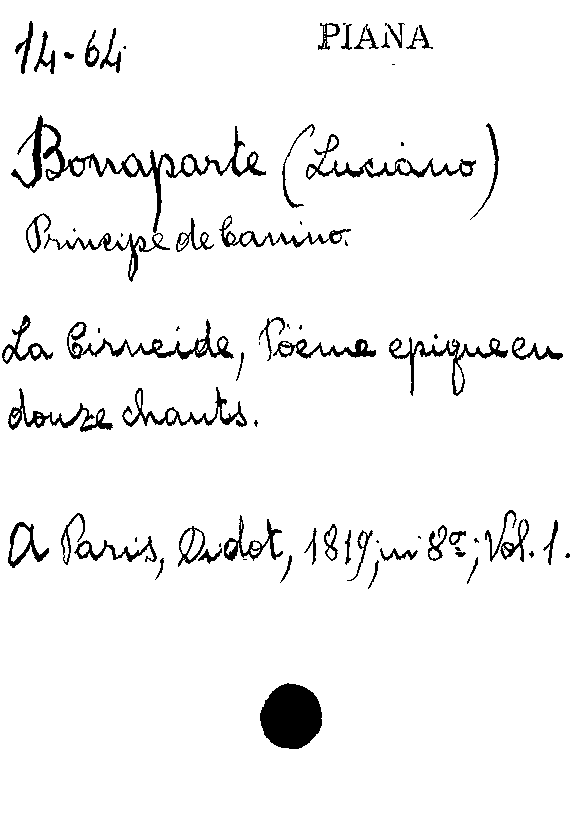 14-64
PIANA
Bonaparte (Luciano)
Principe de Canino.
La Cirneide, Poéme epique en
douze chants.
A Paris, Didot, 1819, in 8º; Vol. 1.